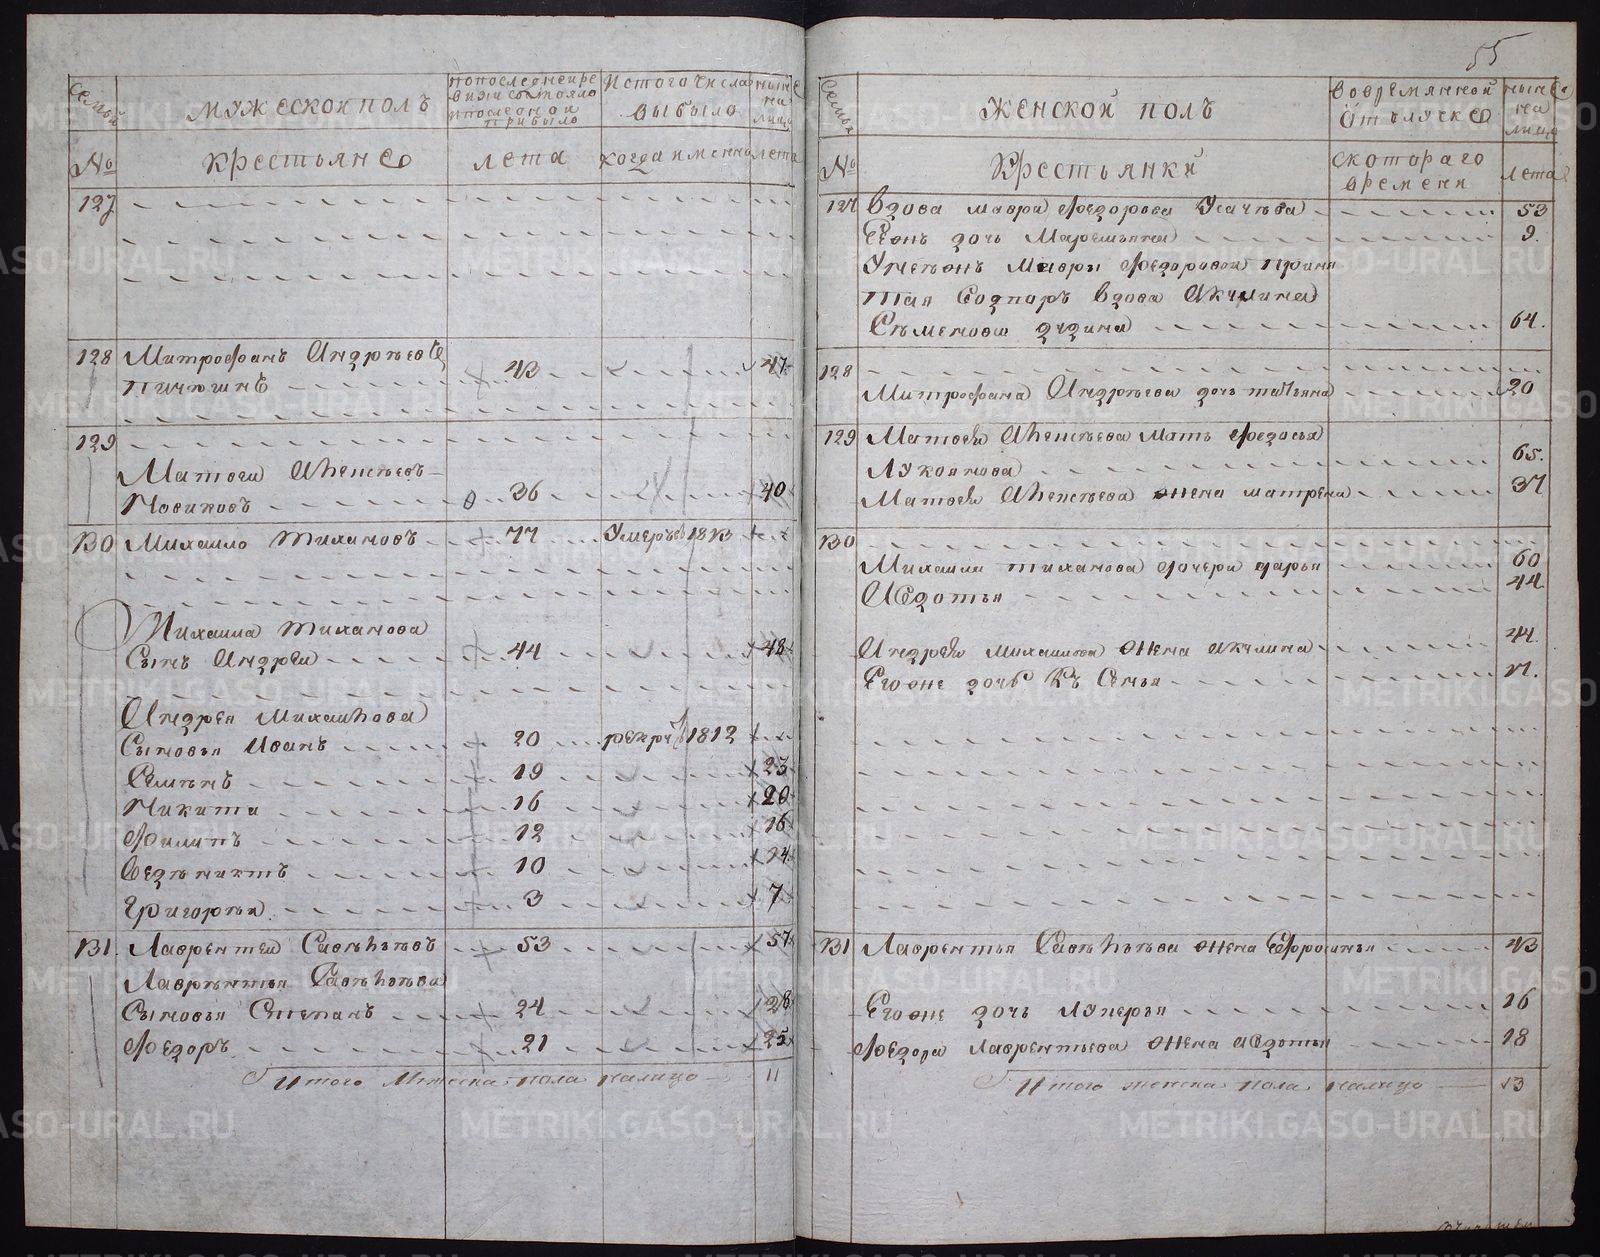 55
Семьи
МУЖЕСКОЙ ПОЛЪ
по последней ре
визии состояло
и после оной
прибыло
Из того числа
выбыло
ныне
на
лицо
№
Крестьяне
лета
когда именно
лета
127
128 Митрофанъ Андрѣевъ
Пичюгинъ 43 47
129
Матвей
Новиковъ 36 40
130 Михаило Тихановъ 77 Умеръ въ 1813
Михаила Тиханова
Сынъ Андрей 44 48
Андрея Михайлова
Сыновья Иванъ 20 рекрут 1812
Семенъ 19 23
Никита 16 20
Филипъ 12 16
10 14
Григорья 3 7
131 Лаврентей Савельевъ 53 57
Лаврентья Савельева
Сыновья Степанъ 24 28
Федоръ 21 25
Итого Мужеска пола налицо 11
Семьи
ЖЕНСКОЙ ПОЛЪ
во времянной
отлучке
ныне
на
лицо
№
Крестьянки
с котораго
времени
лета
127 Вдова Мавра Федорова Усачева 53
Еѣ онъ дочь Маремьяна 9
Умеъонъ Мавры Федоровой прин
тая вдова Акулина
Семенова 64
128
Митрофана Андрѣева дочь татьяна 20
129 Матвея мать Федосья
Лукоянова 65
Матвея жена матрена 37
130
Михаила тиханова дочери дарья 60
Авдотья 44
Андрея михаилова жена акулина 44
Его оне дочь 7
131 Лаврентья Савельева жена Ефросинья 43
Его оне дочь Лукерья 16
Федора лаврентьева жена авдотья 18
Итого женска пола налицо 13
METRIKI.GASO-URAL.RU